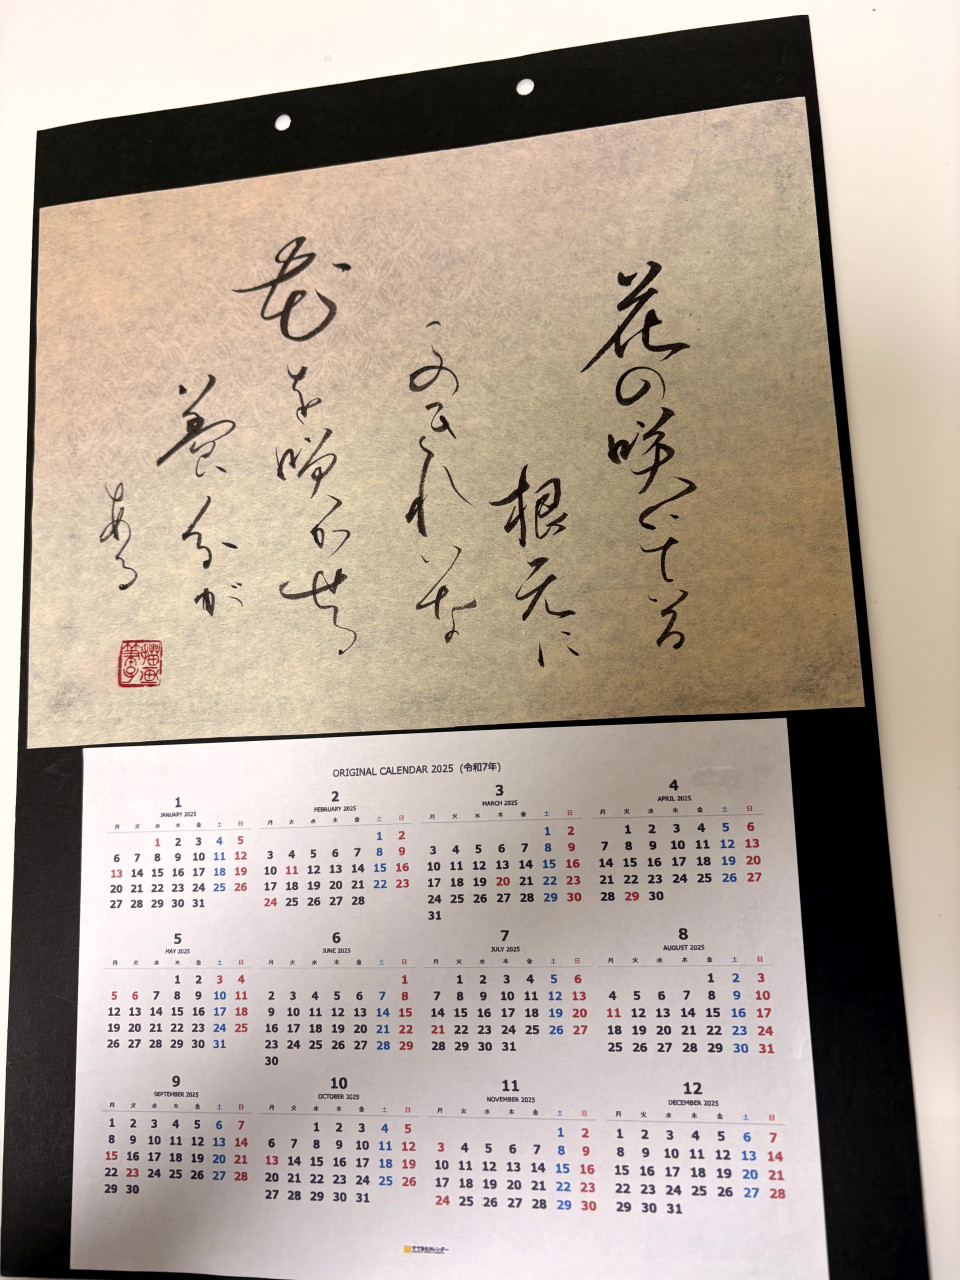 花の咲いている
根元に
きれいな
花を咲かせる
養分が
ある
ORIGINAL CALENDAR 2025 (令和7年)
1
JANUARY 2025
月 火 水 木 金 土 日
1 2 3 4 5
6 7 8 9 10 11 12
13 14 15 16 17 18 19
20 21 22 23 24 25 26
27 28 29 30 31
2
FEBRUARY 2025
月 火 水 木 金 土 日
1 2
3 4 5 6 7 8 9
10 11 12 13 14 15 16
17 18 19 20 21 22 23
24 25 26 27 28
3
MARCH 2025
月 火 水 木 金 土 日
1 2
3 4 5 6 7 8 9
10 11 12 13 14 15 16
17 18 19 20 21 22 23
24 25 26 27 28 29 30
31
4
APRIL 2025
月 火 水 木 金 土 日
1 2 3 4 5 6
7 8 9 10 11 12 13
14 15 16 17 18 19 20
21 22 23 24 25 26 27
28 29 30
5
MAY 2025
月 火 水 木 金 土 日
1 2 3 4
5 6 7 8 9 10 11
12 13 14 15 16 17 18
19 20 21 22 23 24 25
26 27 28 29 30 31
6
JUNE 2025
月 火 水 木 金 土 日
1
2 3 4 5 6 7 8
9 10 11 12 13 14 15
16 17 18 19 20 21 22
23 24 25 26 27 28 29
30
7
JULY 2025
月 火 水 木 金 土 日
1 2 3 4 5 6
7 8 9 10 11 12 13
14 15 16 17 18 19 20
21 22 23 24 25 26 27
28 29 30 31
8
AUGUST 2025
月 火 水 木 金 土 日
1 2 3
4 5 6 7 8 9 10
11 12 13 14 15 16 17
18 19 20 21 22 23 24
25 26 27 28 29 30 31
9
SEPTEMBER 2025
月 火 水 木 金 土 日
1 2 3 4 5 6 7
8 9 10 11 12 13 14
15 16 17 18 19 20 21
22 23 24 25 26 27 28
29 30
10
OCTOBER 2025
月 火 水 木 金 土 日
1 2 3 4 5
6 7 8 9 10 11 12
13 14 15 16 17 18 19
20 21 22 23 24 25 26
27 28 29 30 31
11
NOVEMBER 2025
月 火 水 木 金 土 日
1 2
3 4 5 6 7 8 9
10 11 12 13 14 15 16
17 18 19 20 21 22 23
24 25 26 27 28 29 30
12
DECEMBER 2025
月 火 水 木 金 土 日
1 2 3 4 5 6 7
8 9 10 11 12 13 14
15 16 17 18 19 20 21
22 23 24 25 26 27 28
29 30 31